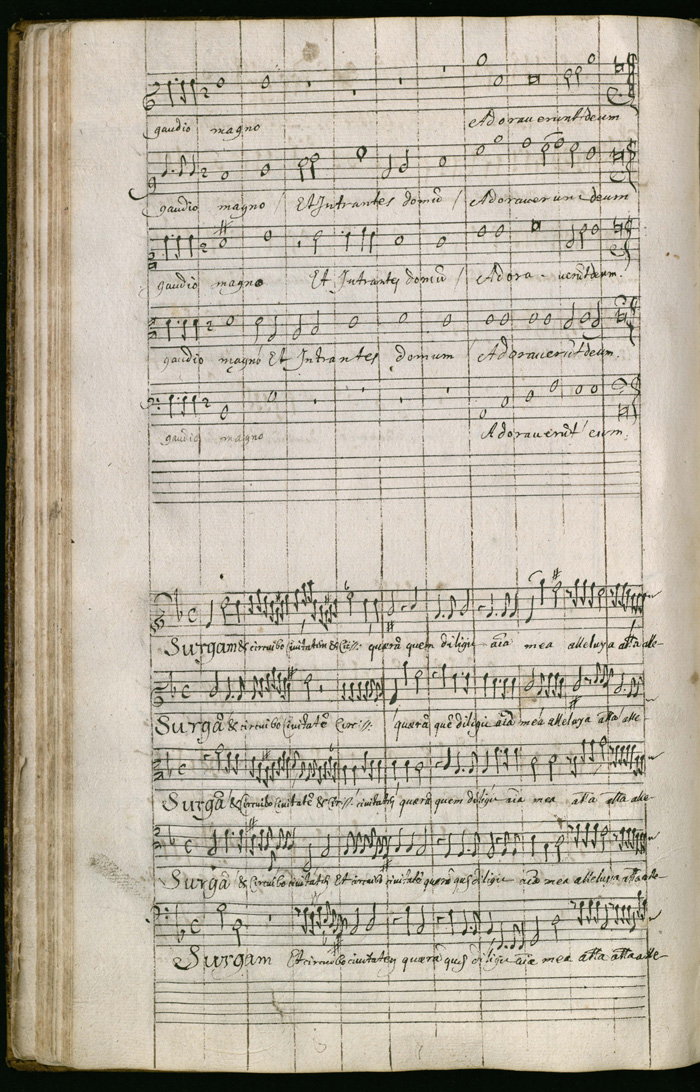 gaudio magno Adorauerunt deum
gaudio magno / Et Intrantes domũ / Adorauerunt deum
gaudio magno Et Intrantes domũ / Adora - uerũt deum.
gaudio magno Et Intrantes domum / Adorauerũt deum.
gaudio magno Adorauerũt eum.
Surgam & circuibo Ciuitatem & quærã quem diligit aĩa mea alleluya alla alle-
Surgã & circuibo Ciuitatẽ quærã quẽ diligit aĩa mea alleluya alla alle-
Surgã & Circuibo Ciuitatẽ & ciuitatẽ quærã quem diligit aĩa mea alla alla alle-
Surgã & Circuibo ciuitatẽ Et circuibo ciuitatẽ quærã quẽ diligit aĩa mea alleluya alla alle-
Surgam Et circuibo ciuitatem quærã quẽ diligit aĩa mea alla alla alle-